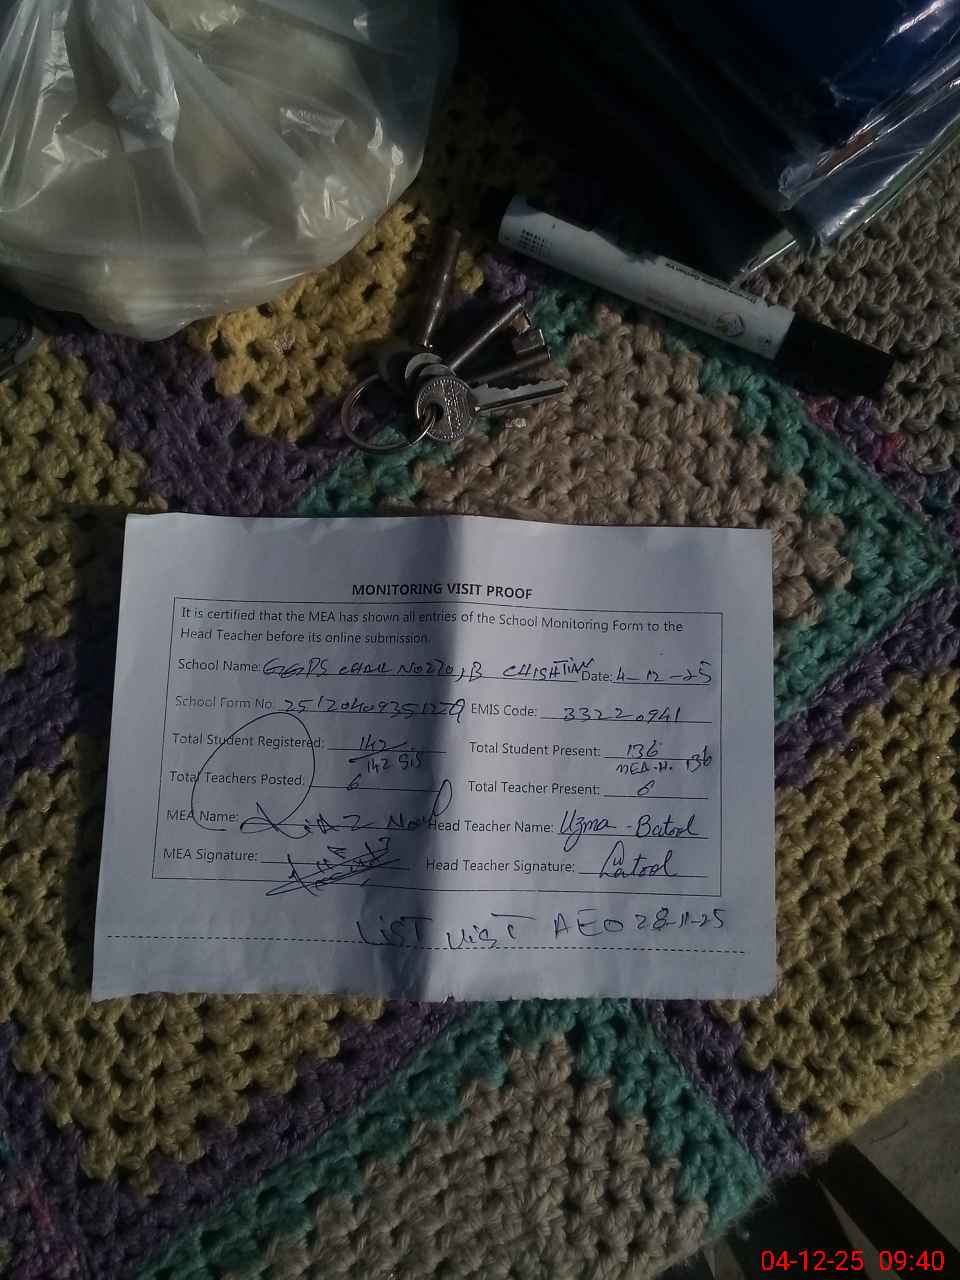 MONITORING VISIT PROOF
It is certified that the MEA has shown all entries of the School Monitoring Form to the
Head Teacher before its online submission.
School Name: GGPS CHAK NO 270, B CHISHTIAN Date: 4-12-25
School Form No. EMIS Code: 33220941
Total Student Registered: 142 Total Student Present: 136
142 SIS MEA.H. 136
Total Teachers Posted: 6 Total Teacher Present: 6
MEA Name: Head Teacher Name: Uzma - Batool
MEA Signature: Head Teacher Signature: Batool
LIST VIST AEO 28-11-25
04-12-25 09:40